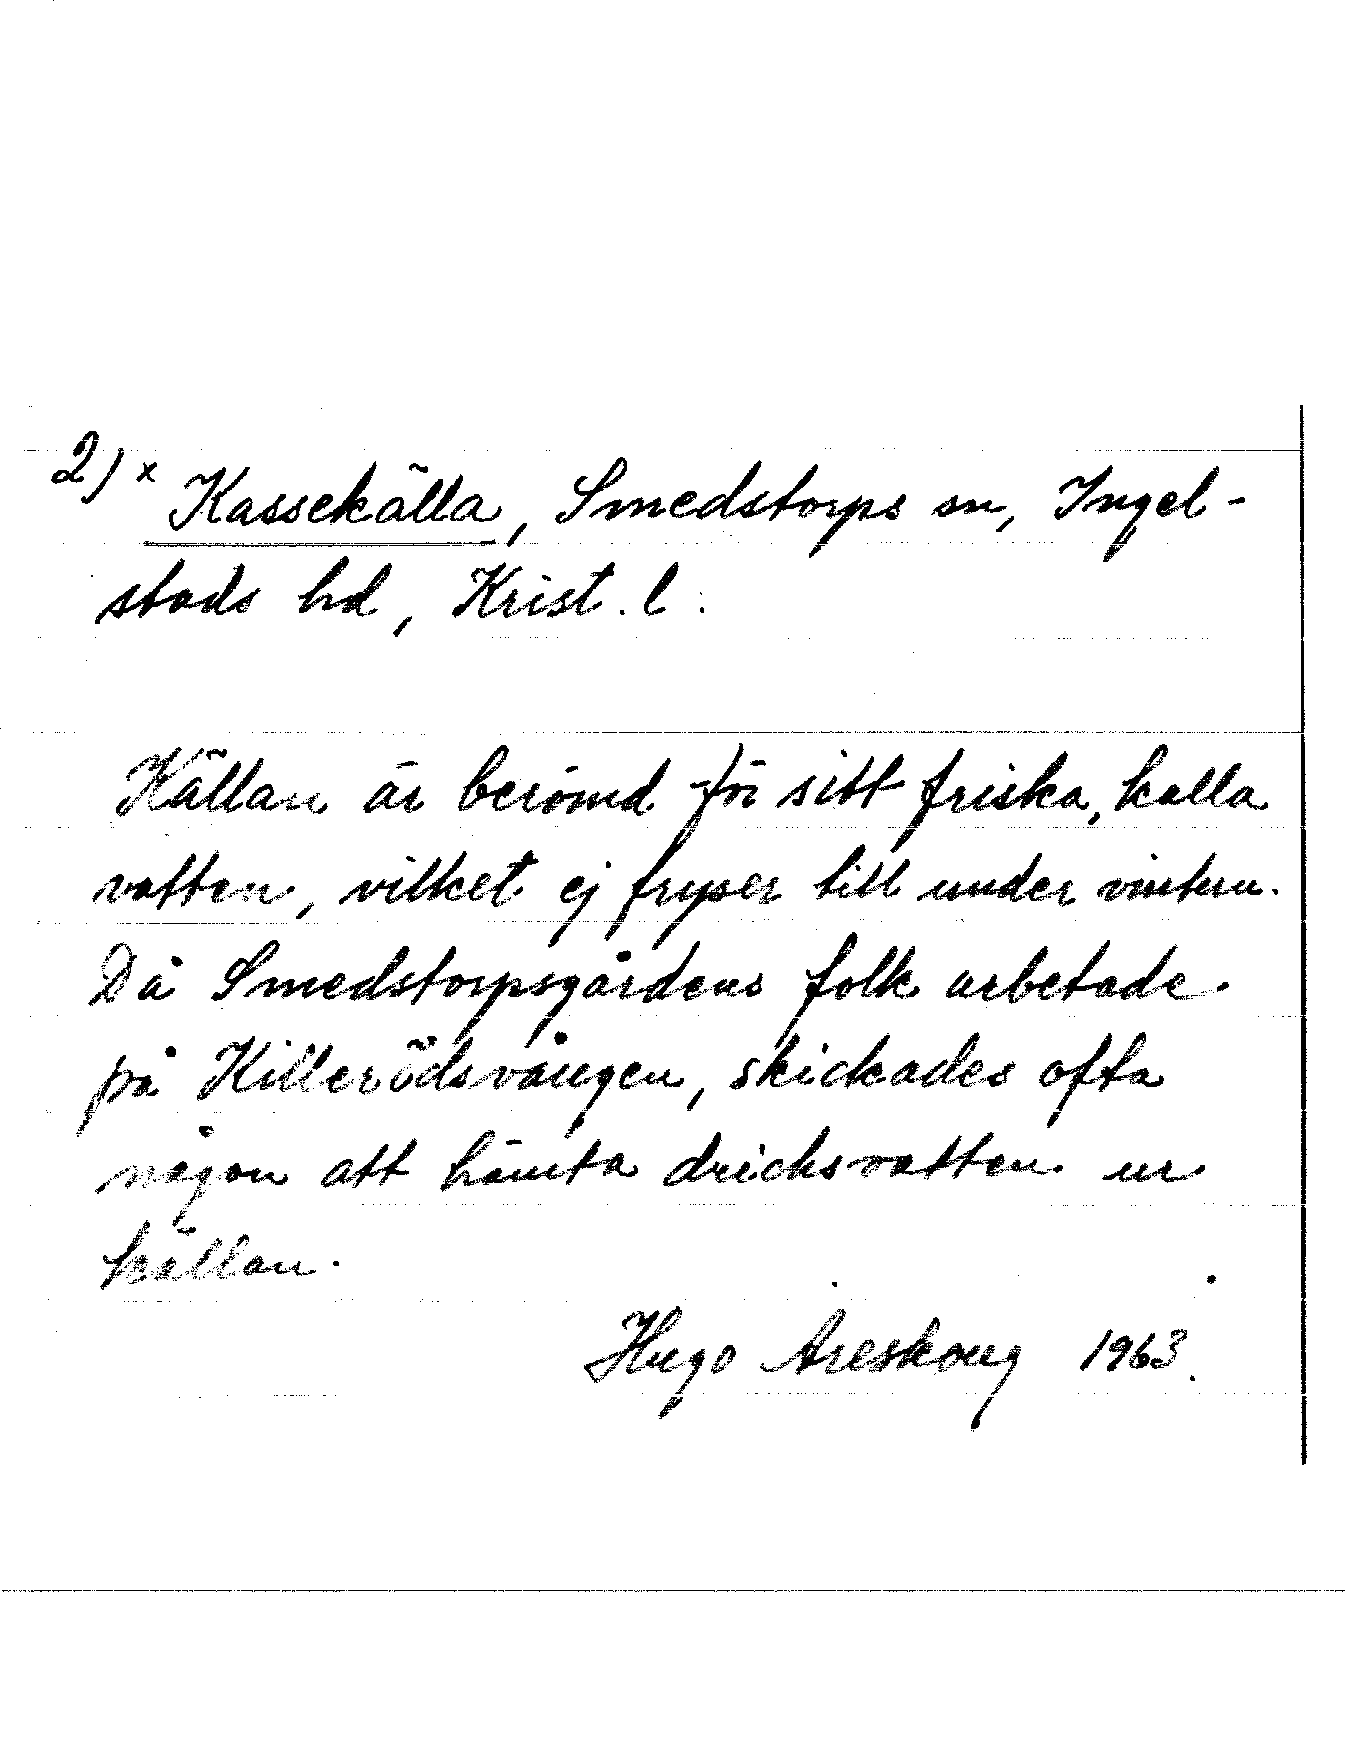 2) x Kassekälla, Smedstorps sn, Ingel-
stads hd, Krist. l.
Källan är berömd för sitt friska, kalla
vatten, vilket ej fryser till under vintern.
Då Smedstorpsgårdens folk arbetade
på Killerödsvången, skickades ofta
någon att hämta dricksvatten ur
källan.
Hugo Areskoug 1963.